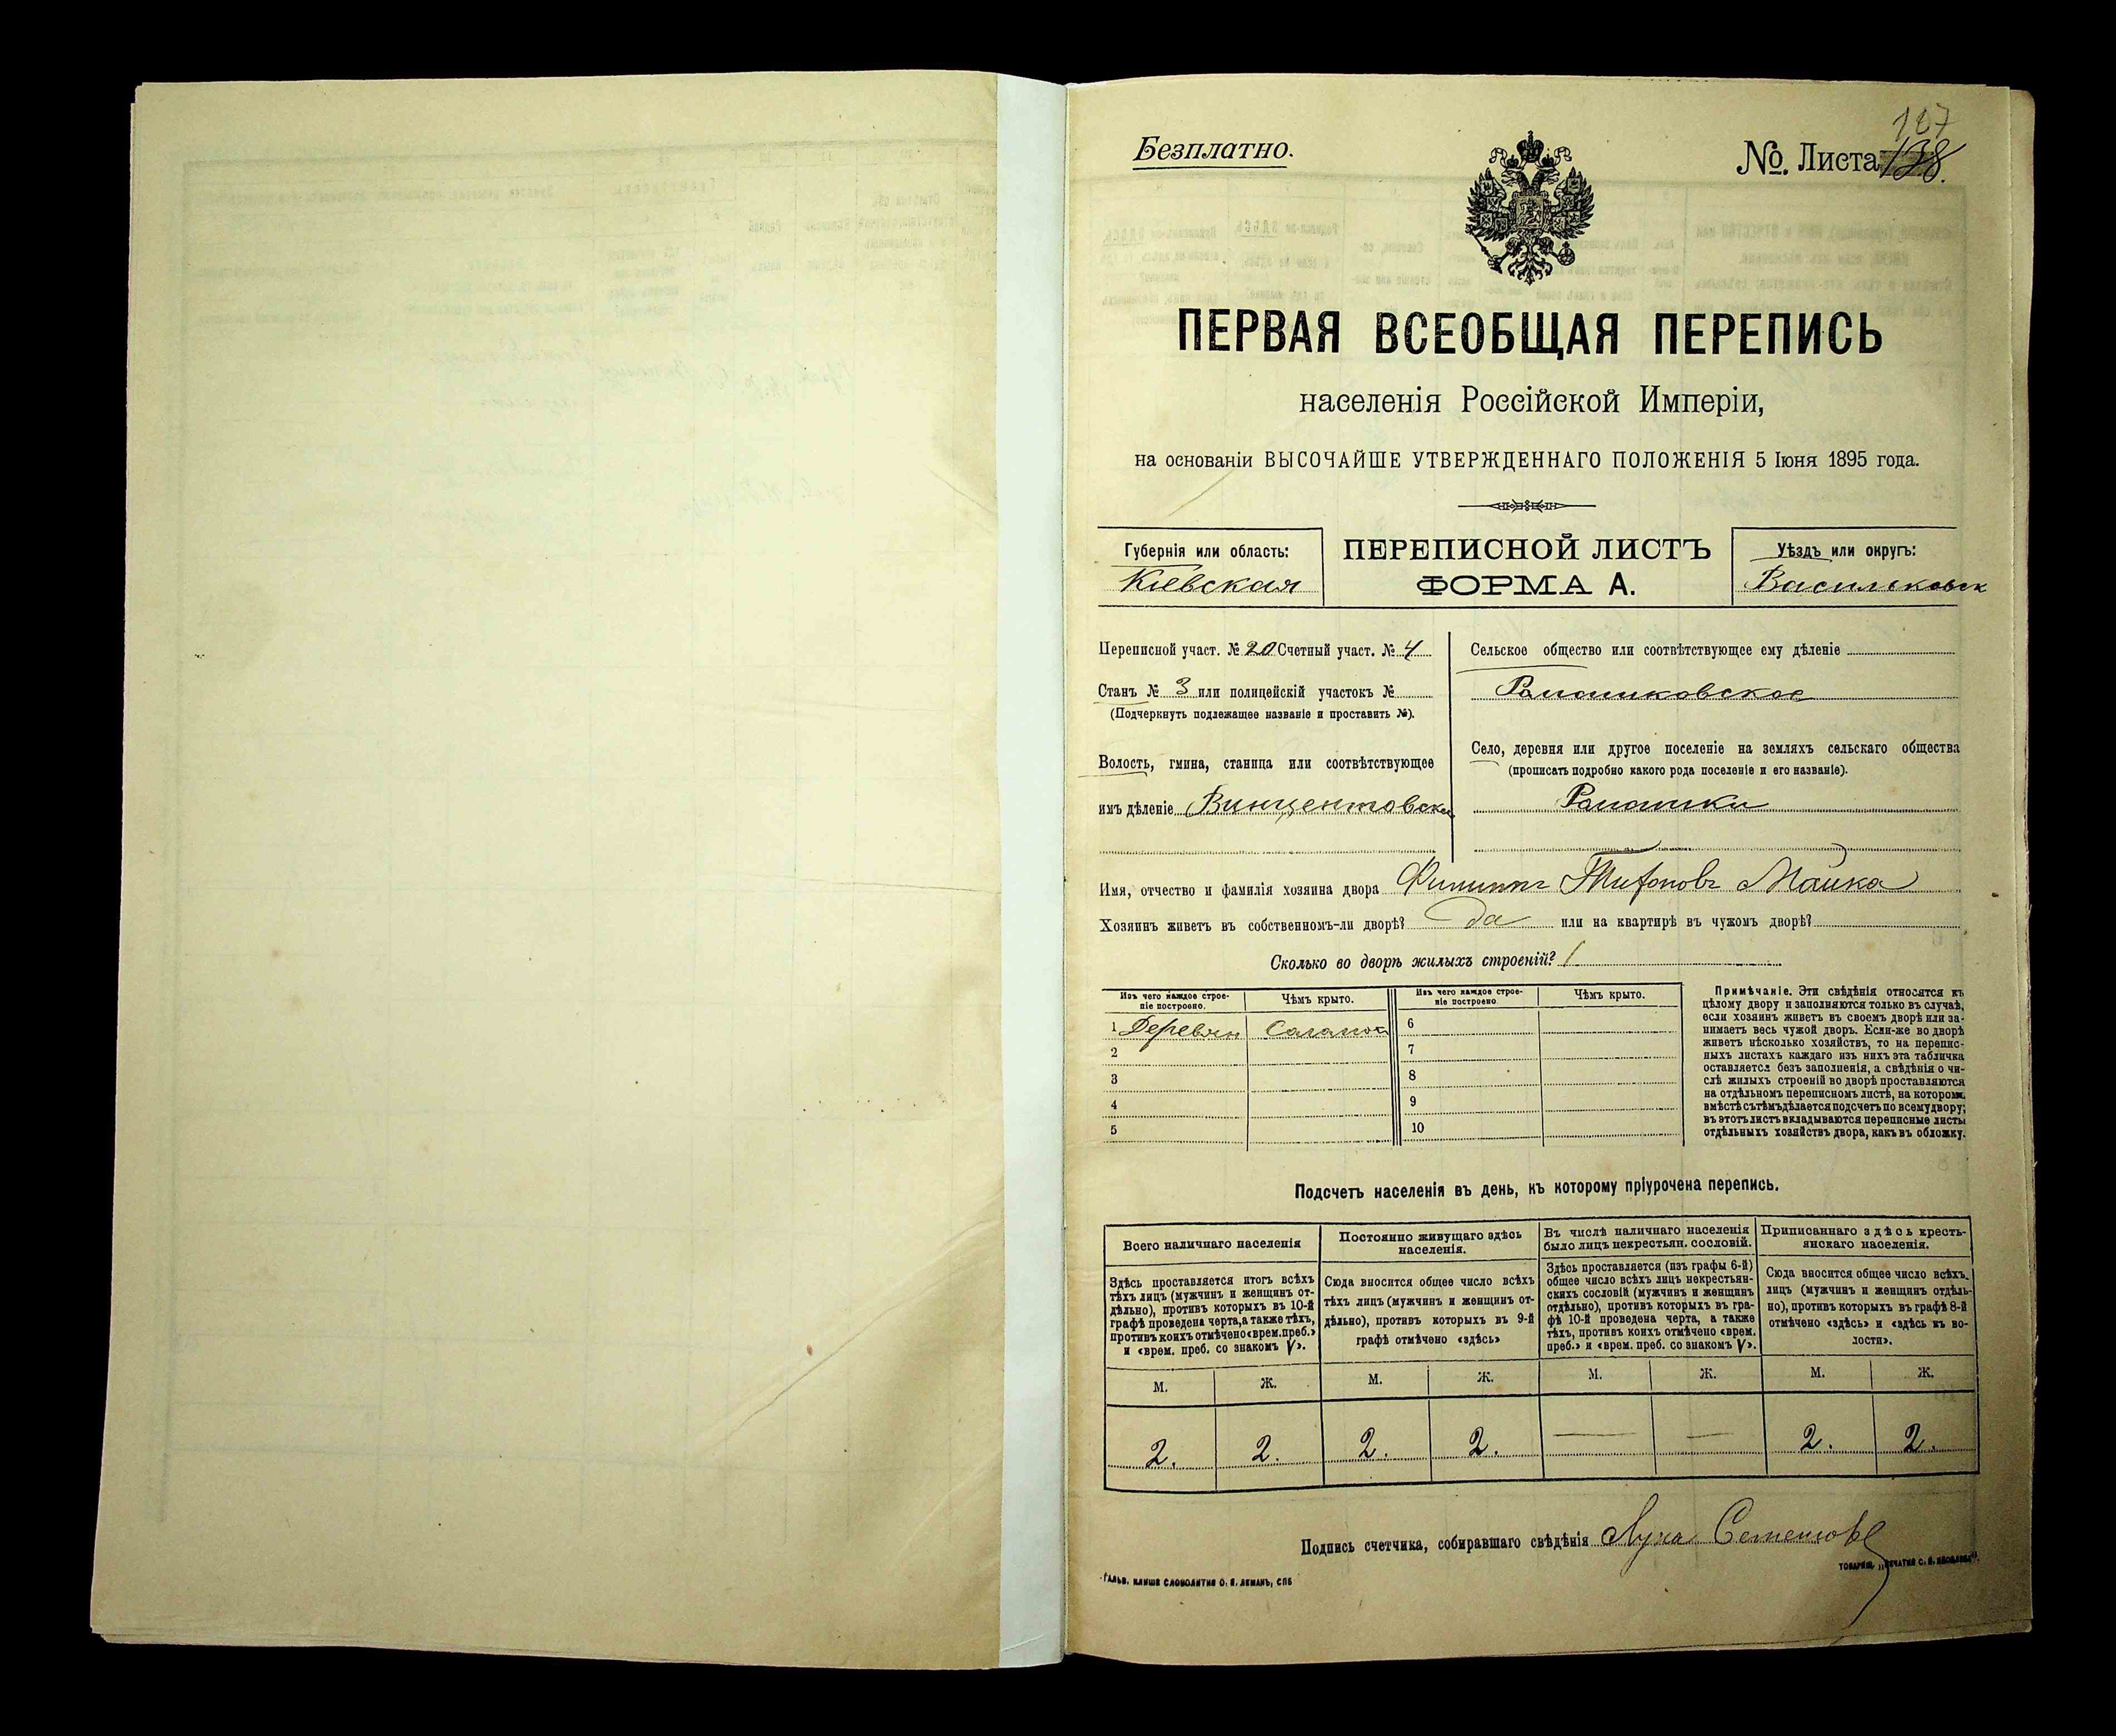 Безплатно.
167
№. Листа 138.
ПЕРВАЯ ВСЕОБЩАЯ ПЕРЕПИСЬ
населенія Россійской Имперіи,
на основаніи ВЫСОЧАЙШЕ УТВЕРЖДЕННАГО ПОЛОЖЕНІЯ 5 Іюня 1895 года.
Губернія или область:
Кіевская
ПЕРЕПИСНОЙ ЛИСТЪ
ФОРМА А.
Уѣздъ или округъ:
Васильковск
Переписной участ. № 20 Счетный участ. № 4
Станъ № 3 или полицейскій участокъ №
(Подчеркнуть подлежащее названіе и проставить №).
Волость, гмина, станица или соотвѣтствующее
имъ дѣленіе Винцентовская
Сельское общество или соотвѣтствующее ему дѣленіе
Ромашковское
Село, деревня или другое поселеніе на земляхъ сельскаго общества
(прописать подробно какого рода поселеніе и его названіе).
Ромашки
Имя, отчество и фамилія хозяина двора Филиппъ
Хозяинъ живетъ въ собственномъ-ли дворѣ? да или на квартирѣ въ чужомъ дворѣ?
Сколько во дворѣ жилыхъ строеній? 1
Изъ чего каждое строе-
ніе построено.
Чѣмъ крыто.
Изъ чего каждое строе-
ніе построено
Чѣмъ крыто.
1 Деревян Саламой 6
2 7
3 8
4 9
5 10
Примѣчаніе. Эти свѣдѣнія относятся къ
цѣлому двору и заполняются только въ случаѣ,
если хозяинъ живетъ въ своемъ дворѣ или за-
нимаетъ весь чужой дворъ. Если-же во дворѣ
живетъ нѣсколько хозяйствъ, то на перепис-
ныхъ листахъ каждаго изъ нихъ эта табличка
оставляется безъ заполненія, а свѣдѣнія о чи-
слѣ жилыхъ строеній во дворѣ проставляются
на отдѣльномъ переписномъ листѣ, на которомъ
вмѣстѣ съ тѣмъ дѣлается подсчетъ по всему двору;
въ этотъ листъ вкладываются переписные листы
отдѣльныхъ хозяйствъ двора, какъ въ обложку.
Подсчетъ населенія въ день, къ которому пріурочена перепись.
Всего наличнаго населенія
Здѣсь проставляется итогъ всѣхъ
тѣхъ лицъ (мужчинъ и женщинъ от-
дѣльно), противъ которыхъ въ 10-й
графѣ проведена черта, а также тѣхъ,
противъ коихъ отмѣчено «врем. преб.»
и «врем. преб. со знакомъ V».
Постоянно живущаго здѣсь
населенія.
Сюда вносится общее число всѣхъ
тѣхъ лицъ (мужчинъ и женщинъ от-
дѣльно), противъ которыхъ въ 9-й
графѣ отмѣчено «здѣсь»
Въ числѣ наличнаго населенія
было лицъ некрестьян. сословій.
Здѣсь проставляется (изъ графы 6-й)
общее число всѣхъ лицъ некрестьян-
скихъ сословій (мужчинъ и женщинъ
отдѣльно), противъ которыхъ въ гра-
фѣ 10-й проведена черта, а также
тѣхъ, противъ коихъ отмѣчено «врем.
преб.» и «врем. преб. со знакомъ V».
Приписаннаго здѣсь кресть-
янскаго населенія.
Сюда вносится общее число всѣхъ
лицъ (мужчинъ и женщинъ отдѣль-
но), противъ которыхъ въ графѣ 8-й
отмѣчено «здѣсь» и «здѣсь къ во-
лости».
М. Ж. М. Ж. М. Ж. М. Ж.
2. 2. 2. 2. — — 2. 2.
Подпись счетчика, собиравшаго свѣдѣнія Лука
Гальв. клише словолитни О. И. Леманъ, СПБ
Товарищ. „Печатня С. П. Яковлева“.